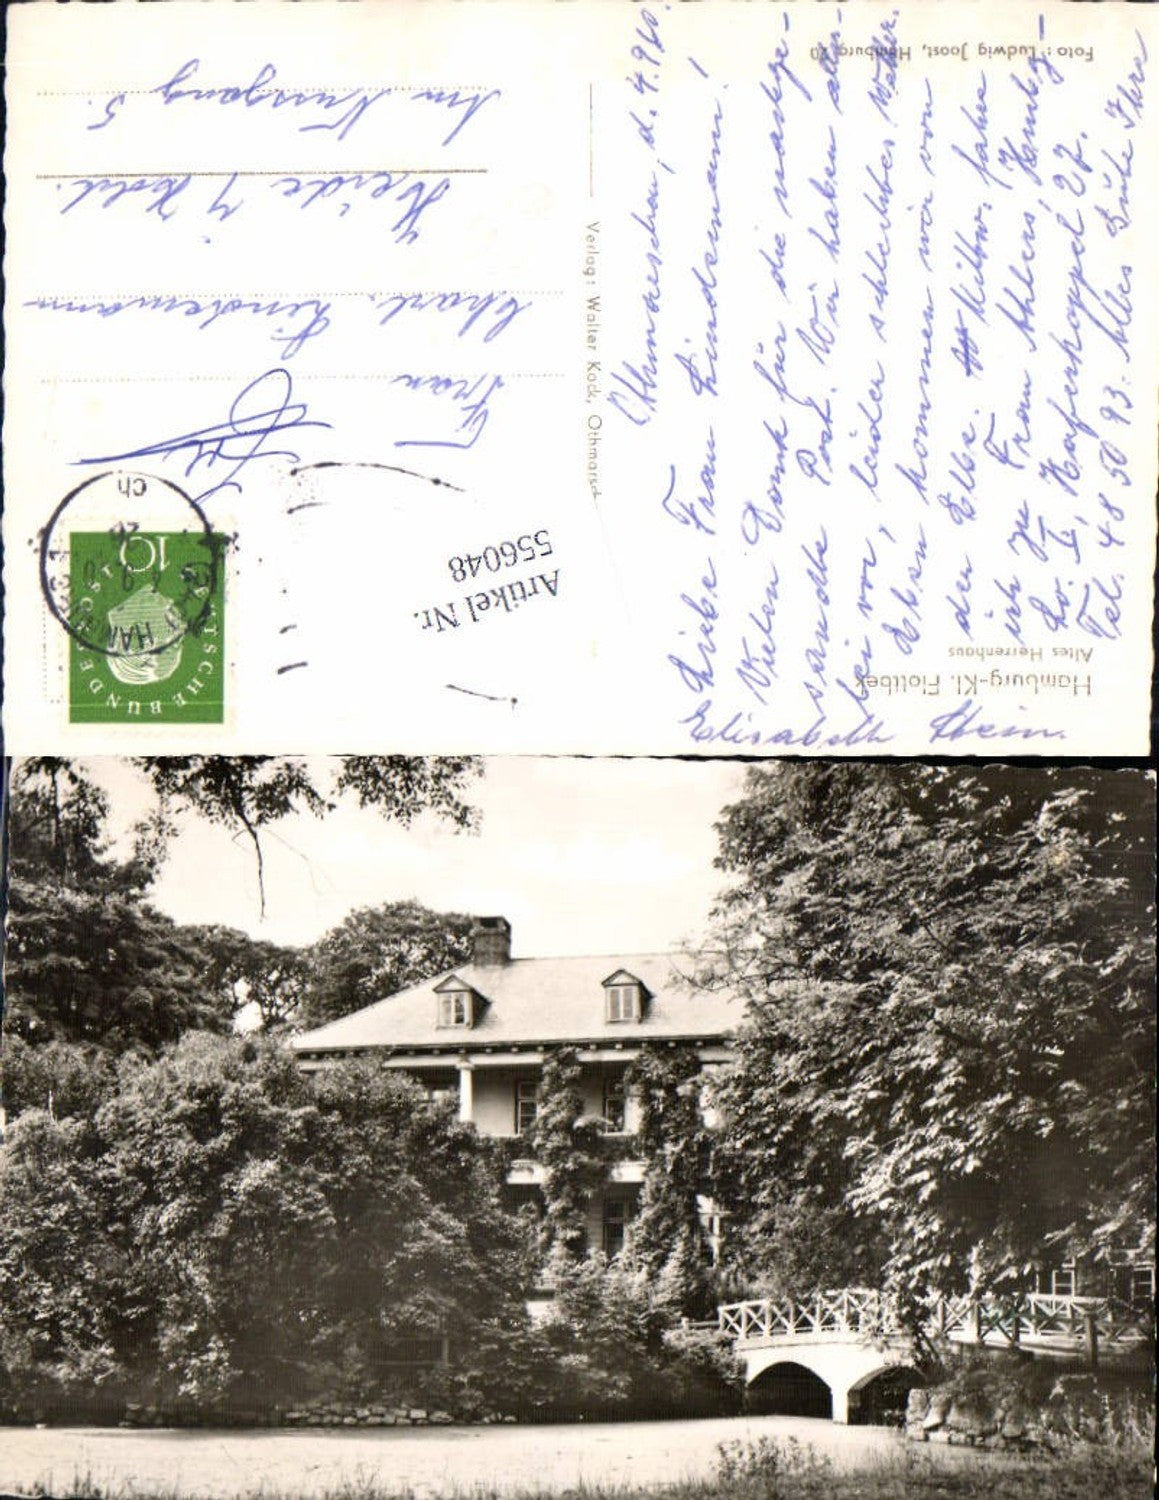 Hamburg-Kl. Flottbek
Altes Herrenhaus
Foto: Ludwig Joost, Hamburg 20
Verlag: Walter Kock, Othmarsch
Artikel Nr.
556048
DEUTSCHE BUNDESPOST
10
HAMBURG
Ch
Frau
Charl. Lindemann
Heide / Holst.
Am Nussgang 5.
Othmarschen, d. 4.9.60.
Liebe Frau Lindemann!
Vielen Dank für die nachge-
sandte Post. Wir haben aller-
lei vor, leider schlechtes Wetter.
Eben kommen wir von
der Elbe. Mittw. fahre
ich zu Frau Ahlers, Hambg.-
Lo. 1, Haferkoppel 27.
Tel. 48 50 93. Alles Gute Ihre
Elisabeth Thein.